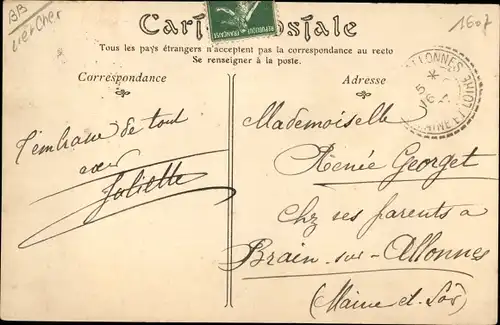 BB
1607
Carte Postale
Tous les pays étrangers n'acceptent pas la correspondance au recto
Se renseigner à la poste.
Correspondance
Adresse
REPUBLIQUE FRANÇAISE
ALLONNES
MAINE ET LOIRE
t'embrasse de tout
Juliette
Mademoiselle
Renée Georget
Chz ses parents a
Brain-sur-Allonnes
(Maine et Loire)